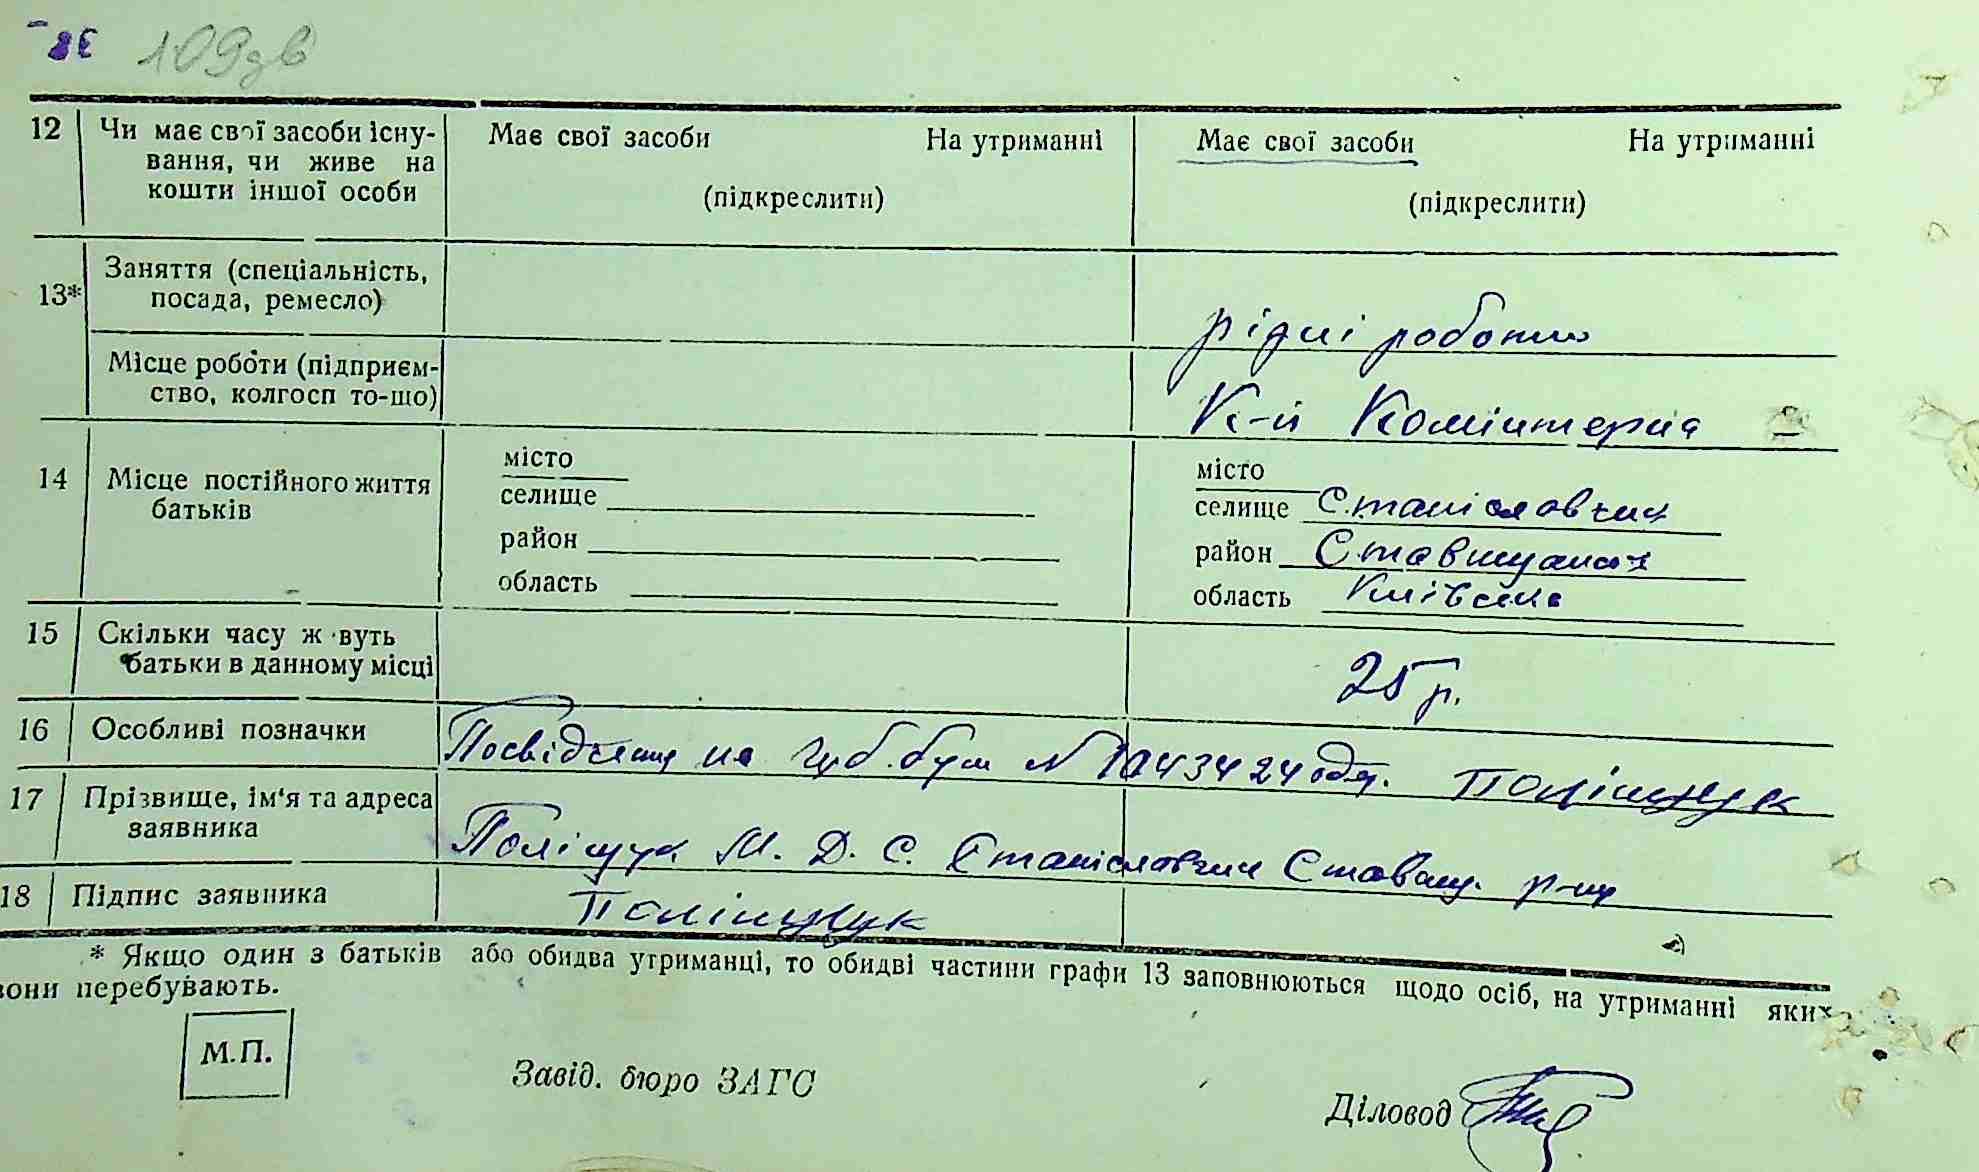 109 зв
12 Чи має свої засоби існу- Має свої засоби На утриманні Має свої засоби На утриманні
вання, чи живе на
кошти іншої особи (підкреслити) (підкреслити)
13* Заняття (спеціальність,
посада, ремесло) рідні роботи
Місце роботи (підприєм-
ство, колгосп то-що) К-п Комінтерна
14 Місце постійного життя батьків
місто місто
селище селище Станіславчик
район район Ставищанськ
область область Київська
15 Скільки часу ж вуть
батьки в данному місці 25 р.
16 Особливі позначки Посвідчення на №1043424 одер. Поліщук
17 Прізвище, ім'я та адреса
заявника Поліщук М. Д. С. Станіславчик Ставищ. р-ну
18 Підпис заявника Поліщук
* Якщо один з батьків або обидва утриманці, то обидві частини графи 13 заповнюються щодо осіб, на утриманні яких
вони перебувають.
М.П.
Завід. бюро ЗАГС
Діловод